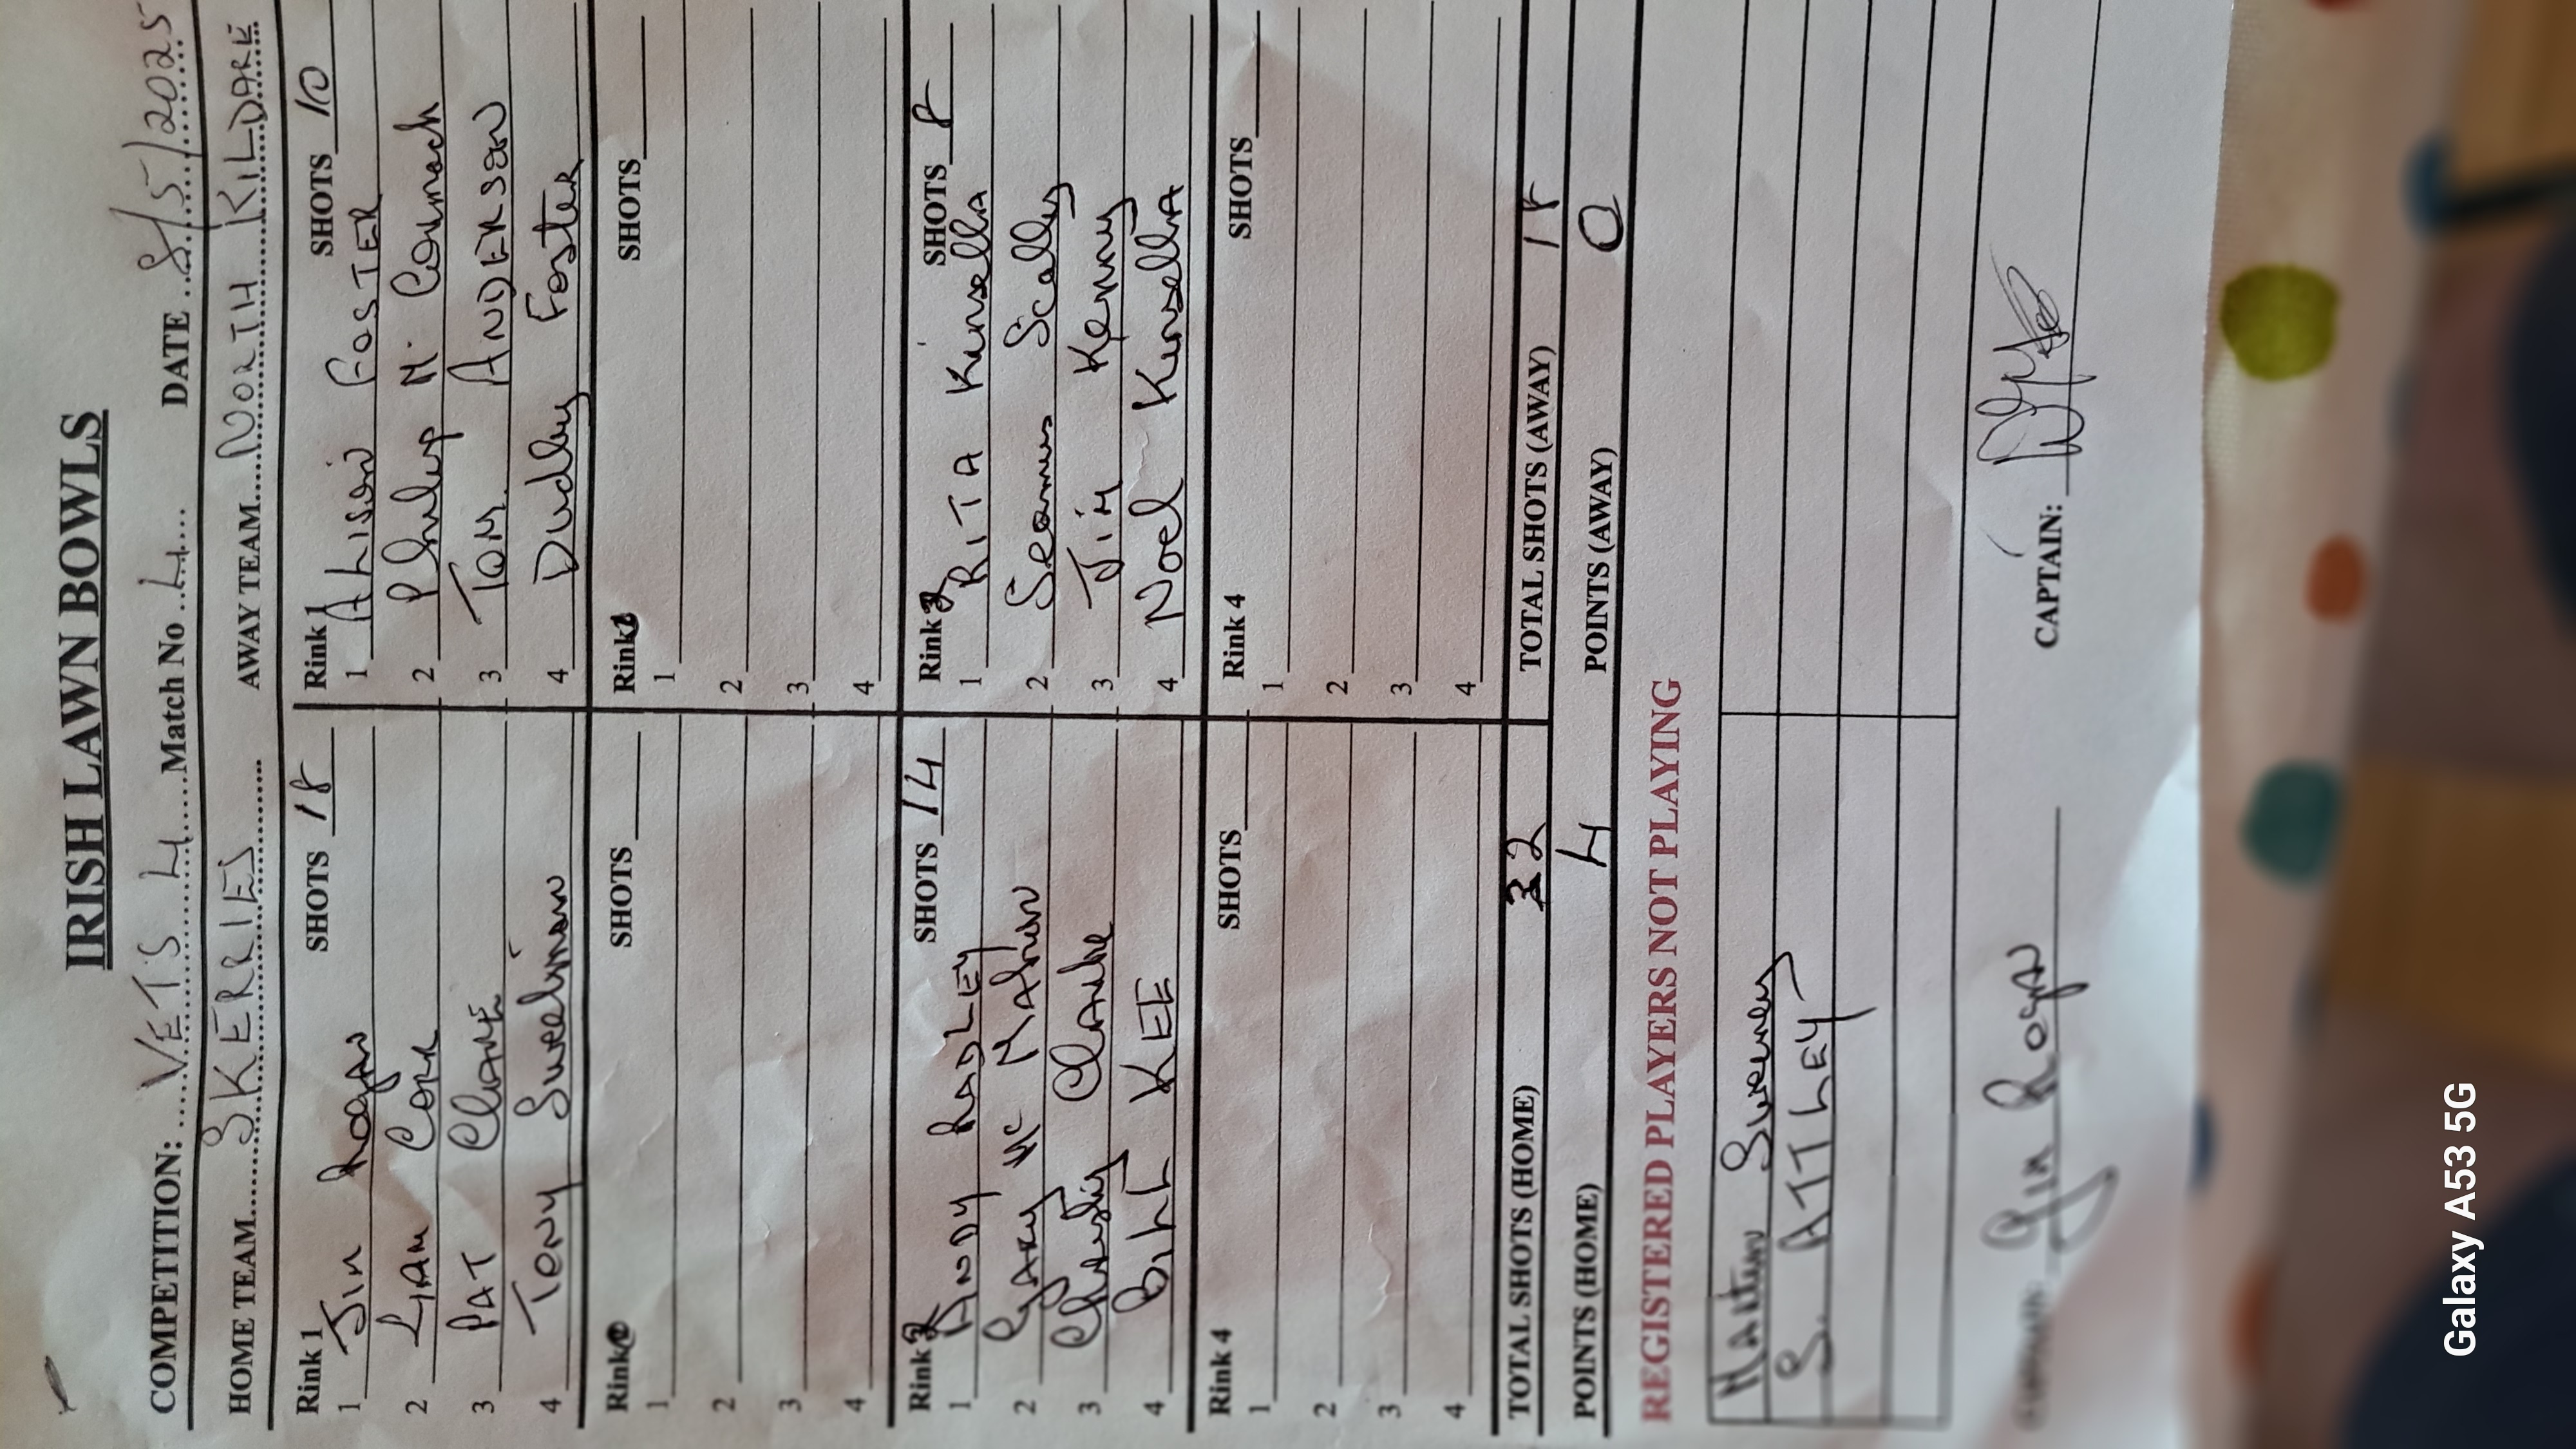 IRISH LAWN BOWLS
COMPETITION: VETS 4 Match No 4 DATE 8/5/2025
HOME TEAM SKERRIES AWAY TEAM NORTH KILDARE
Rink 1 SHOTS 18 Rink 1 SHOTS 10
1 Jim Rogan 1 ALISON FOSTER
2 LIAM CORR 2 Philip Mc Cormack
3 PAT CLARKE 3 TOM ANDERSON
4 TONY Sweetman 4 Dudley Foster
Rink SHOTS Rink SHOTS
1 1
2 2
3 3
4 4
Rink 2 SHOTS 14 Rink 2 SHOTS 8
1 ANDY RADLEY 1 RITA Kinsella
2 GARY Mc MAHON 2 Seamus Scally
3 Christy Clarke 3 Jim Kenny
4 BILL KEE 4 Noel Kinsella
Rink 4 SHOTS Rink 4 SHOTS
1 1
2 2
3 3
4 4
TOTAL SHOTS (HOME) 32 TOTAL SHOTS (AWAY) 18
POINTS (HOME) 4 POINTS (AWAY) 0
REGISTERED PLAYERS NOT PLAYING
Martin Sweeney
S. ATTLEY
Jim Rogan CAPTAIN:
Galaxy A53 5G